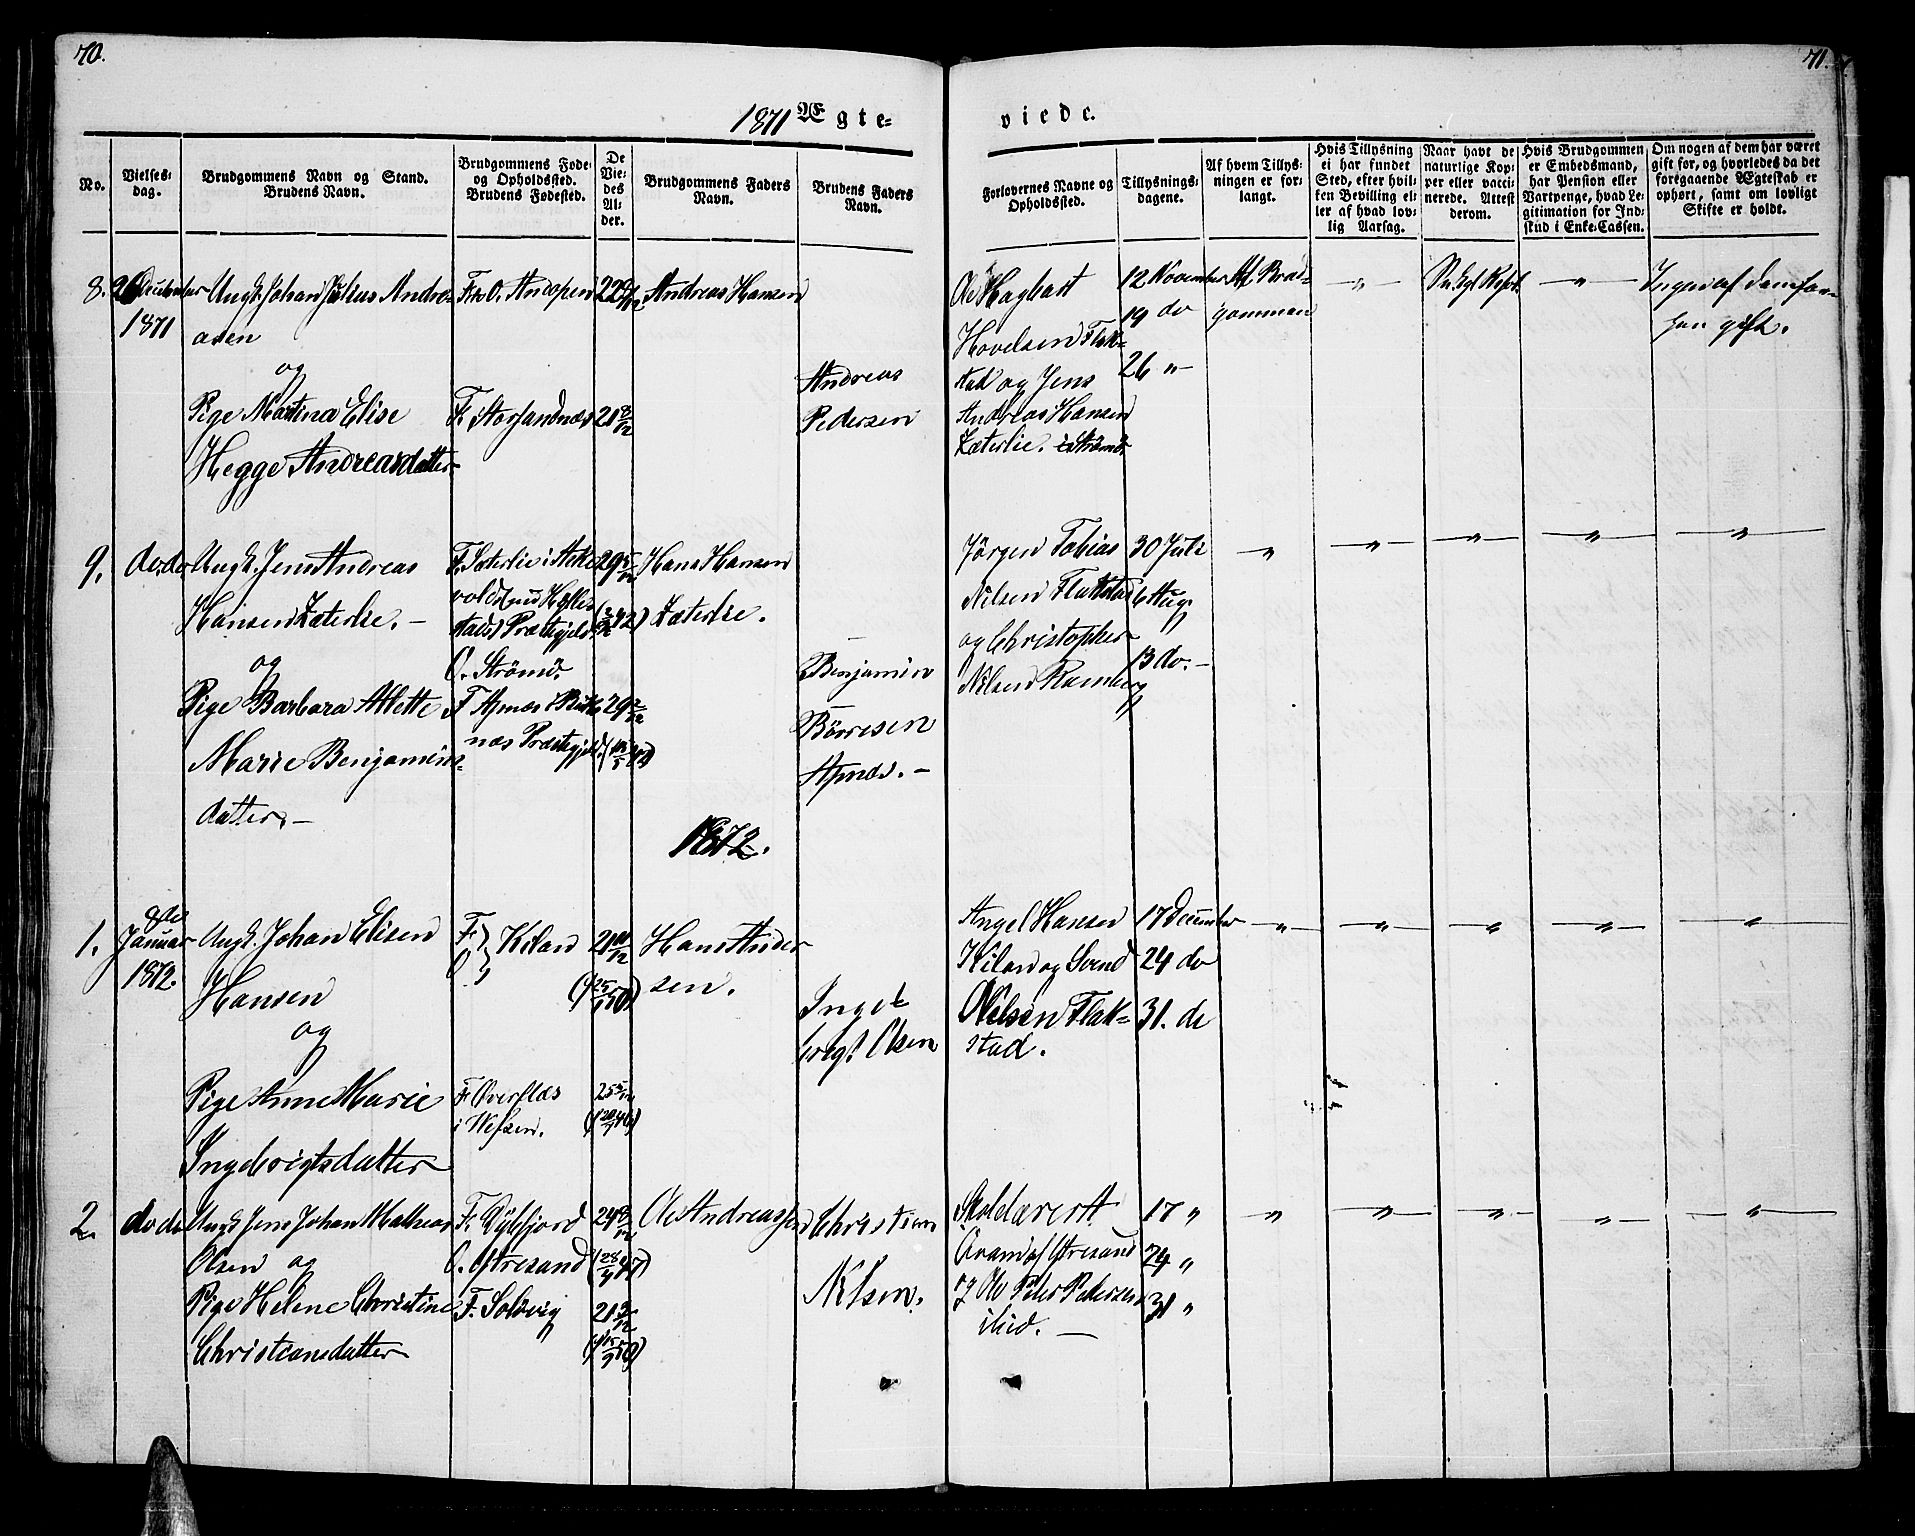 70.
71.
1871 Ægte=
viede.
No.
Vielses=
dag.
Brudgommens Navn og Stand.
Brudens Navn.
Brudgommens Føde=
og Opholdssted.
Brudens Fødested.
De
Vie=
des
Al=
der.
Brudgommens Faders
Navn.
Brudens Faders
Navn.
Forlovernes Navne og
Opholdssted.
Tillysnings=
dagene.
Af hvem Tillys=
ningen er for=
langt.
Hvis Tillysning
ei har fundet
Sted, efter hvil=
ken Bevilling el=
ler af hvad lov=
lig Aarsag.
Naar havt de
naturlige Kop=
per eller vacci=
nerede. Attest
derom.
Hvis Brudgommen
er Embedsmand,
har Pension eller
Vartpenge, hvad Le=
gitimation for Ind=
skud i Enke=Cassen.
Om nogen af dem har været
gift før, og hvorledes da det
foregaaende Ægteskab er
ophørt, samt om lovligt
Skifte er holdt.
8.
26 December
1871
Ungk. Johan Julius Andre-
asen
og
Pige Martina Elise
Hegge Andreasdatter
F. o O. Andopen
F. Storsandnæs
21 8/12
Andreas Hansen
Andreas
Pedersen
Ole Hagbart
Hovelsen Flak-
stad og Jens
Andreas Hansen
Zæterlie. i Strømø
12 November
19 do
26 "
Af Brud-
gommen
"
"
Ingen af dem før-
hen gift.
9.
do. do
Ungk. Jens Andreas
Hansen Zæterlie. -
og
Pige Barbara Albette
Marie Benjamins-
datter. -
F. Sæterlie i
Præstegjeld.
O. Strømø.
næs Præstegjeld.
29 5/12
29 2/12
Hans Hansen
Zæterlie.
Benjamin
Børresen
Apnæs. -
Jørgen Tobias
Nilsen Flakstad
og Christopher
Nilsen Ramberg
30 Juli
6 Aug
13 do. -
"
"
"
"
"
1872.
1.
8de
Januar
1872.
Ungk. Johan Elisen
Hansen
og
Pige Anne Marie
Ingebrigtsdatter
F.
O. } Kilan
F. Øverflaes
i Vefsen.
21
25 5/12
Hans Ander
sen.
Inge
brigt Olsen
Angel Hansen
Kilan og Svend
Nilsen Flak-
stad.
17 December
24 do
31. do
"
"
"
"
"
2.
do do
Ungk Jens Johan Mathias
Olsen og
Pige Helene Christine
Christiansdatter
F. Dybfjord
O. Ytresand
F. Solbvig
24 8/12
21
Ole Andreassen
Christian
Nilsen.
Skolelærer A
Qvam af Ytresand
og Ole Peter Pedersen
ibid. -
17 "
24 "
31 "
"
"
"
"
"